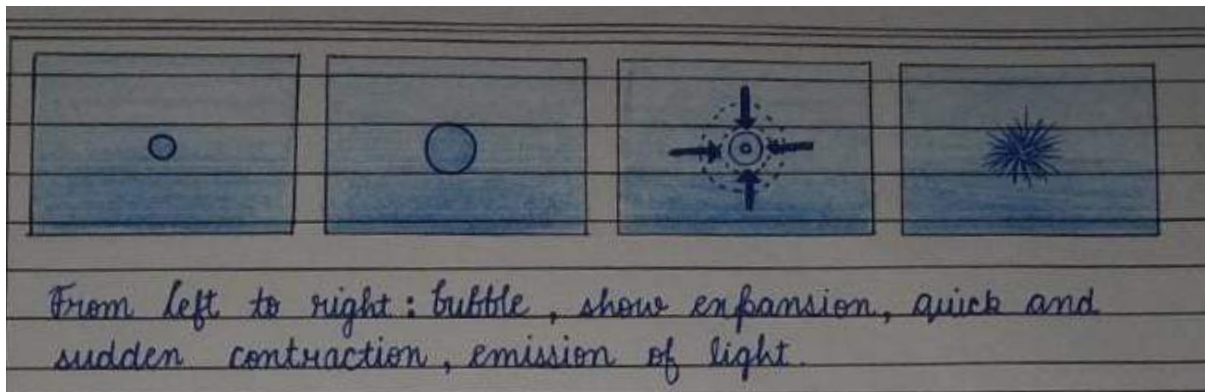 From left to right : bubble , show expansion, quick and
sudden contraction , emission of light.